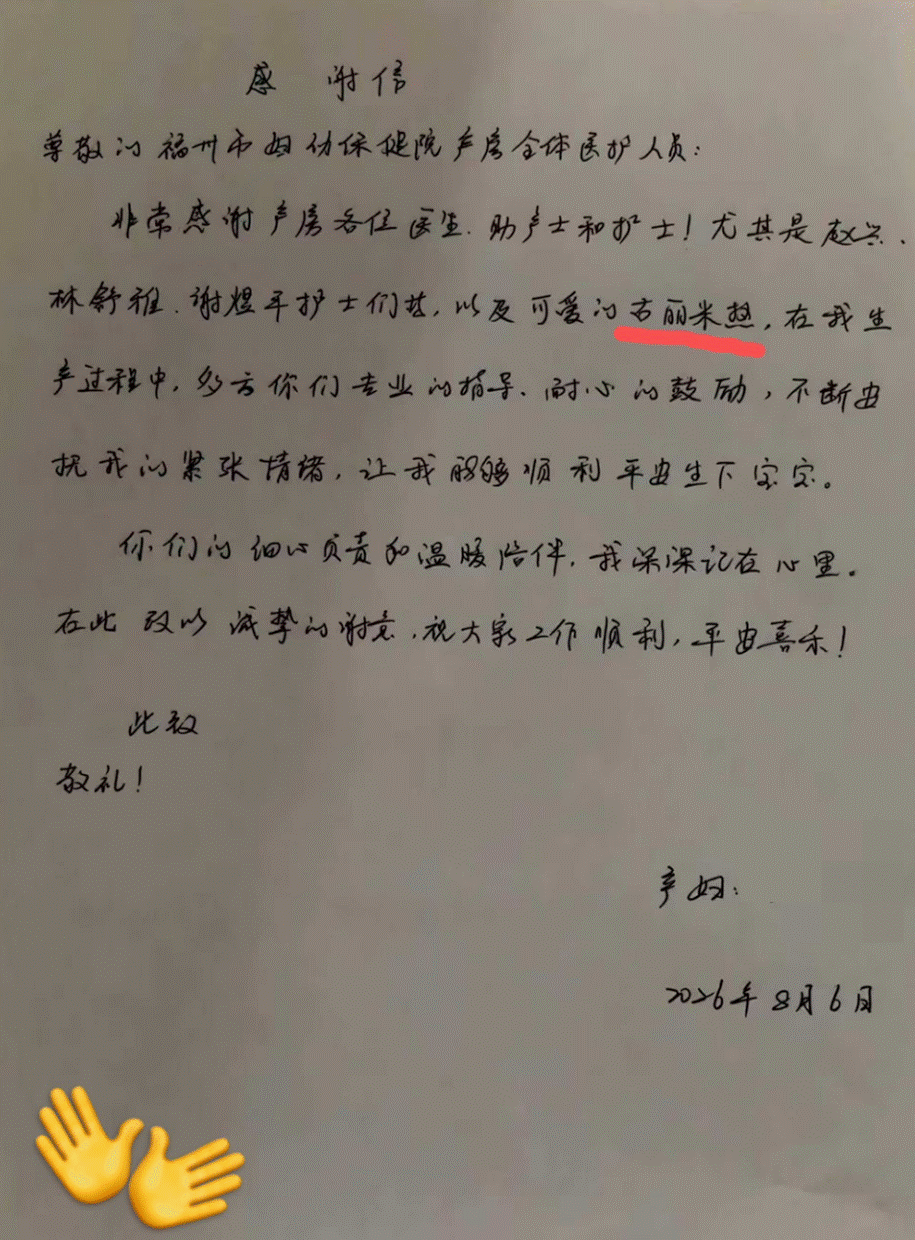 感谢信
尊敬的福州市妇幼保健院产房全体医护人员：
非常感谢产房各位医生、助产士和护士！尤其是赵兴、
林舒雅、谢煜平护士们等，以及可爱的古丽米热，在我生
产过程中，多亏你们专业的指导、耐心的鼓励，不断安
抚我的紧张情绪，让我能够顺利平安生下宝宝。
你们的细心负责和温暖陪伴，我深深记在心里。
在此致以诚挚的谢意，祝大家工作顺利，平安喜乐！
此致
敬礼！
产妇：
2026年8月6日